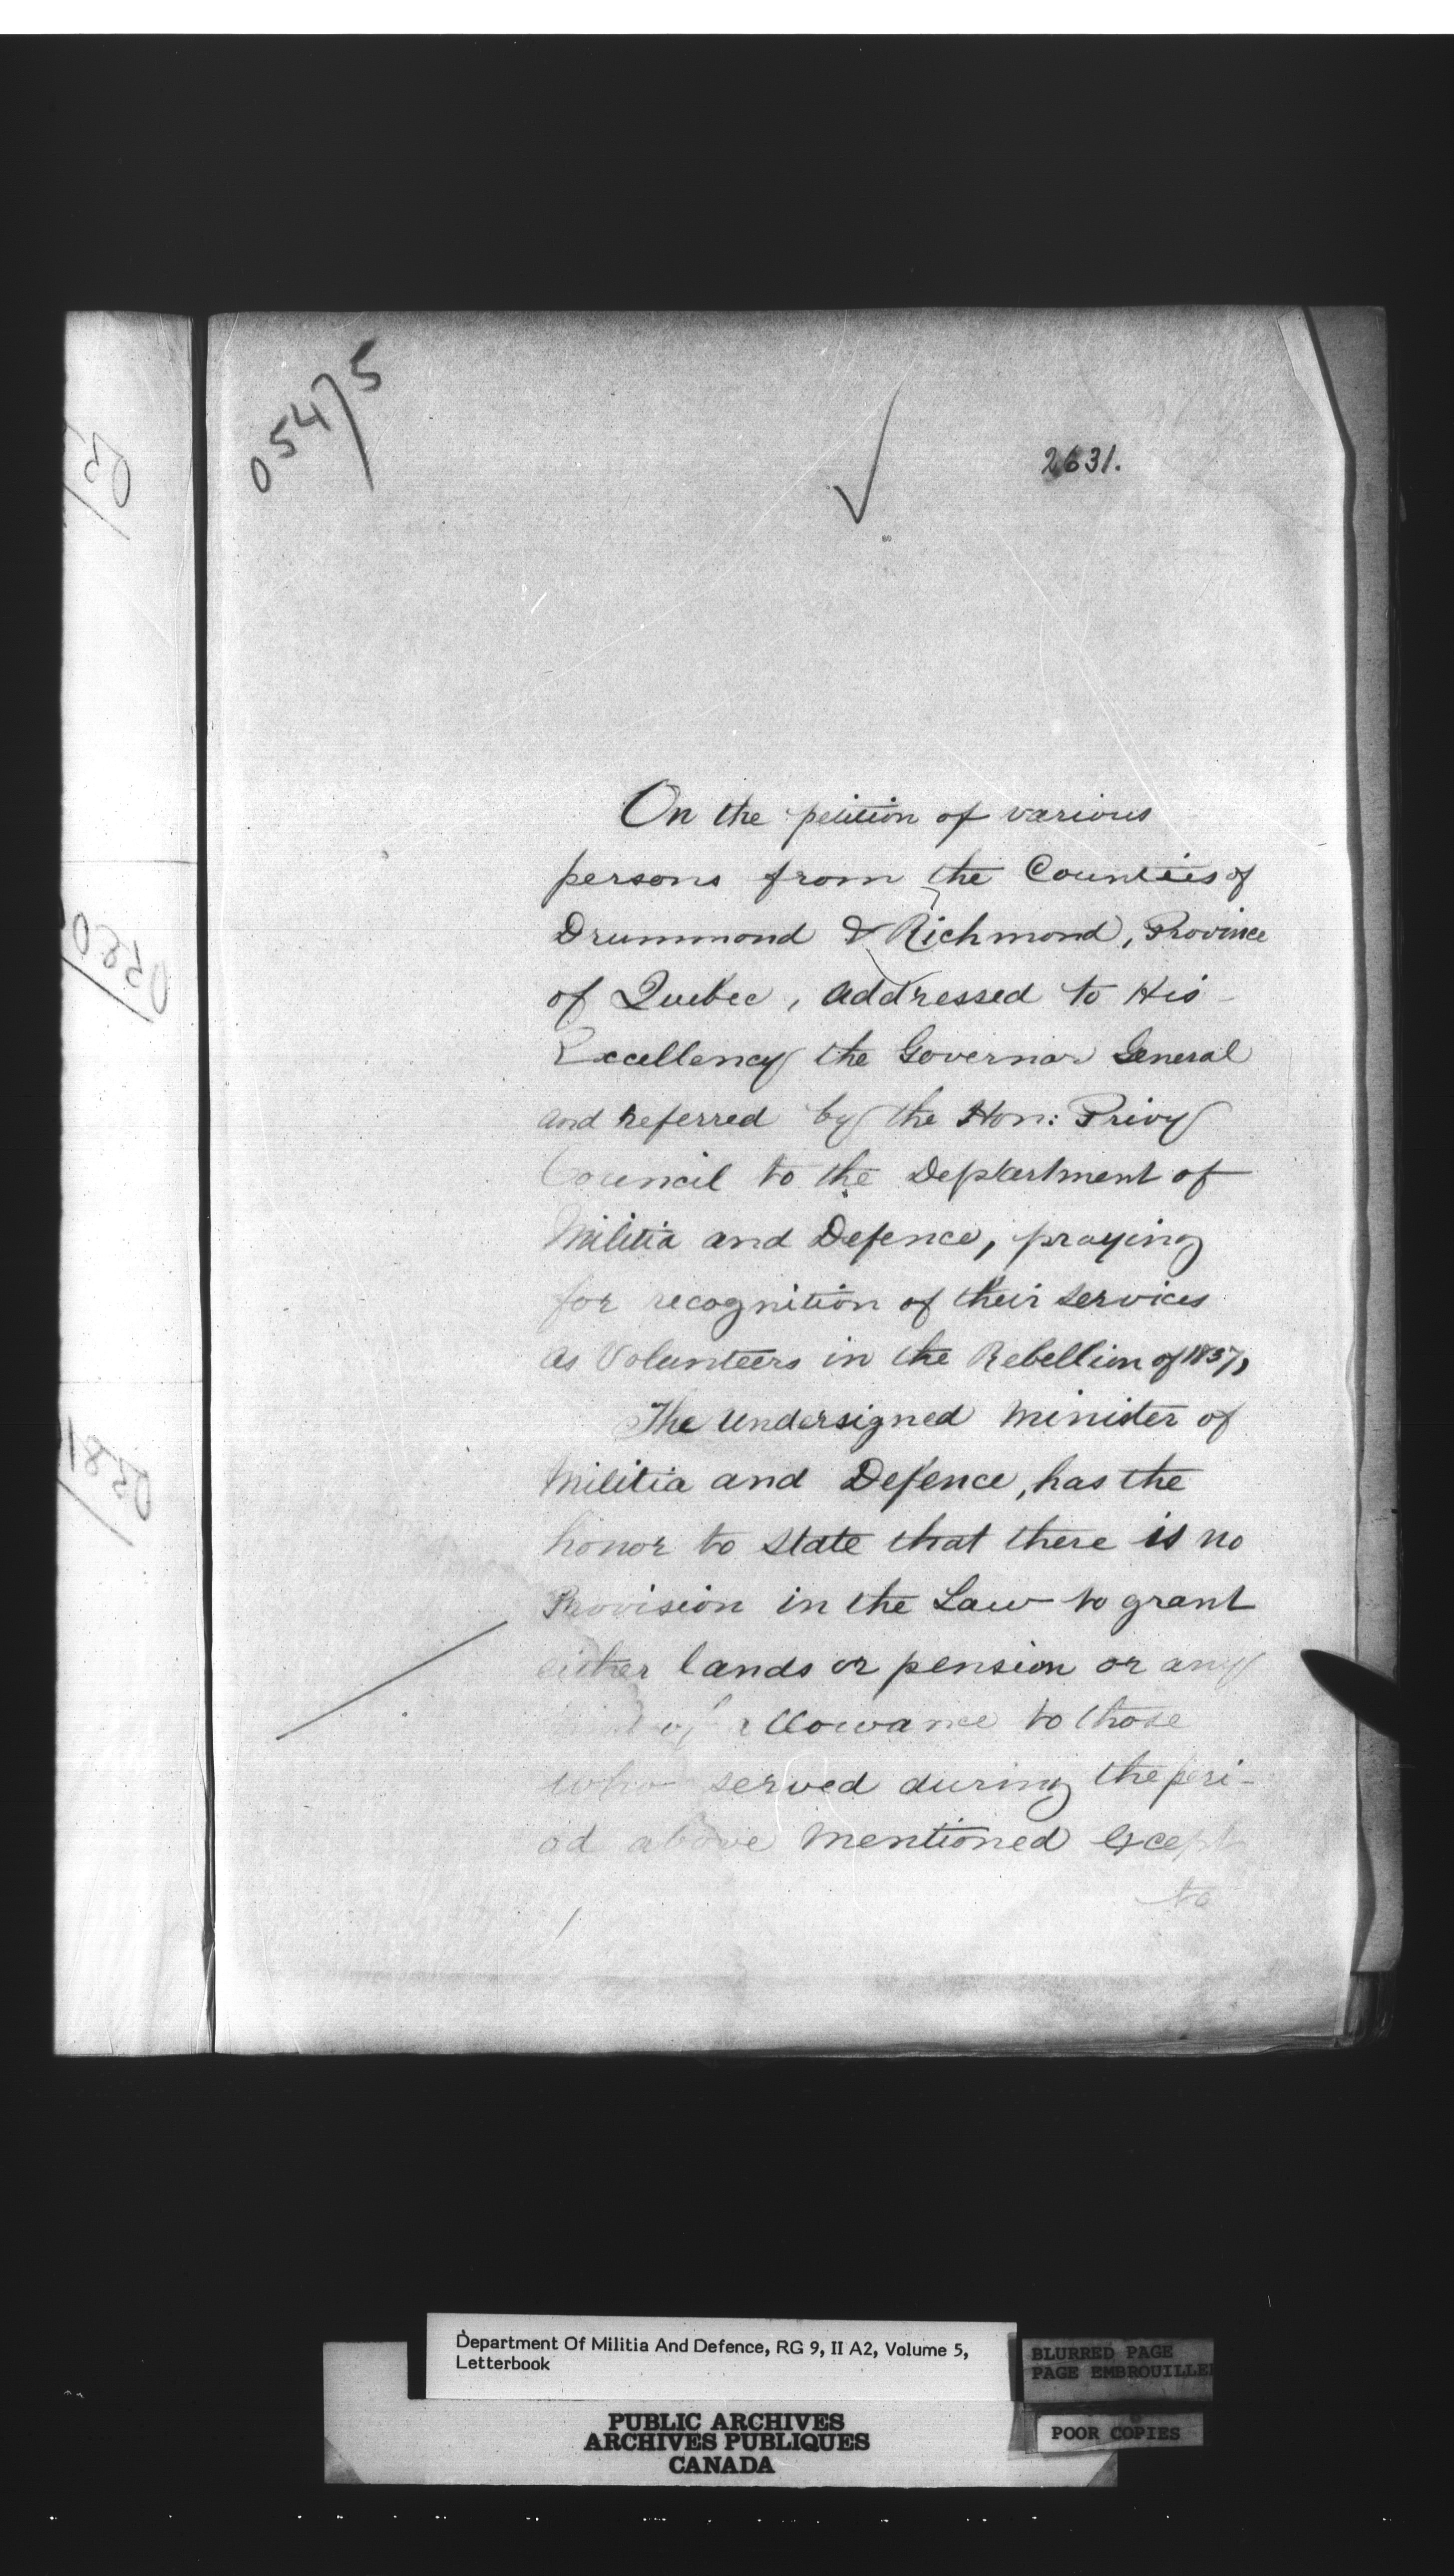 05475
2631.
On the petition of various
persons from the Counties of
Drummond & Richmond, Province
of Quebec, addressed to His
Excellency the Governor General
and referred by the Hon: Privy
Council to the Department of
Militia and Defence, praying
for recognition of their services
as Volunteers in the Rebellion of 1837,
The undersigned Minister of
Militia and Defence, has the
honor to state that there is no
Provision in the Law to grant
either lands or pension or any
of allowance to those
who served during the peri-
od above mentioned except
to
Department Of Militia And Defence, RG 9, II A2, Volume 5,
Letterbook
BLURRED PAGE
PAGE EMBROUILLEE
POOR COPIES
PUBLIC ARCHIVES
ARCHIVES PUBLIQUES
CANADA